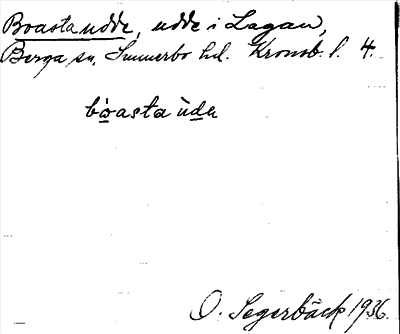 Boasta udde, udde i Lagan,
Berga sn. Sunnerbo hd. Kronob. l. 4.
bò̲asta ùd̲e
O. Segerbäck 1936.